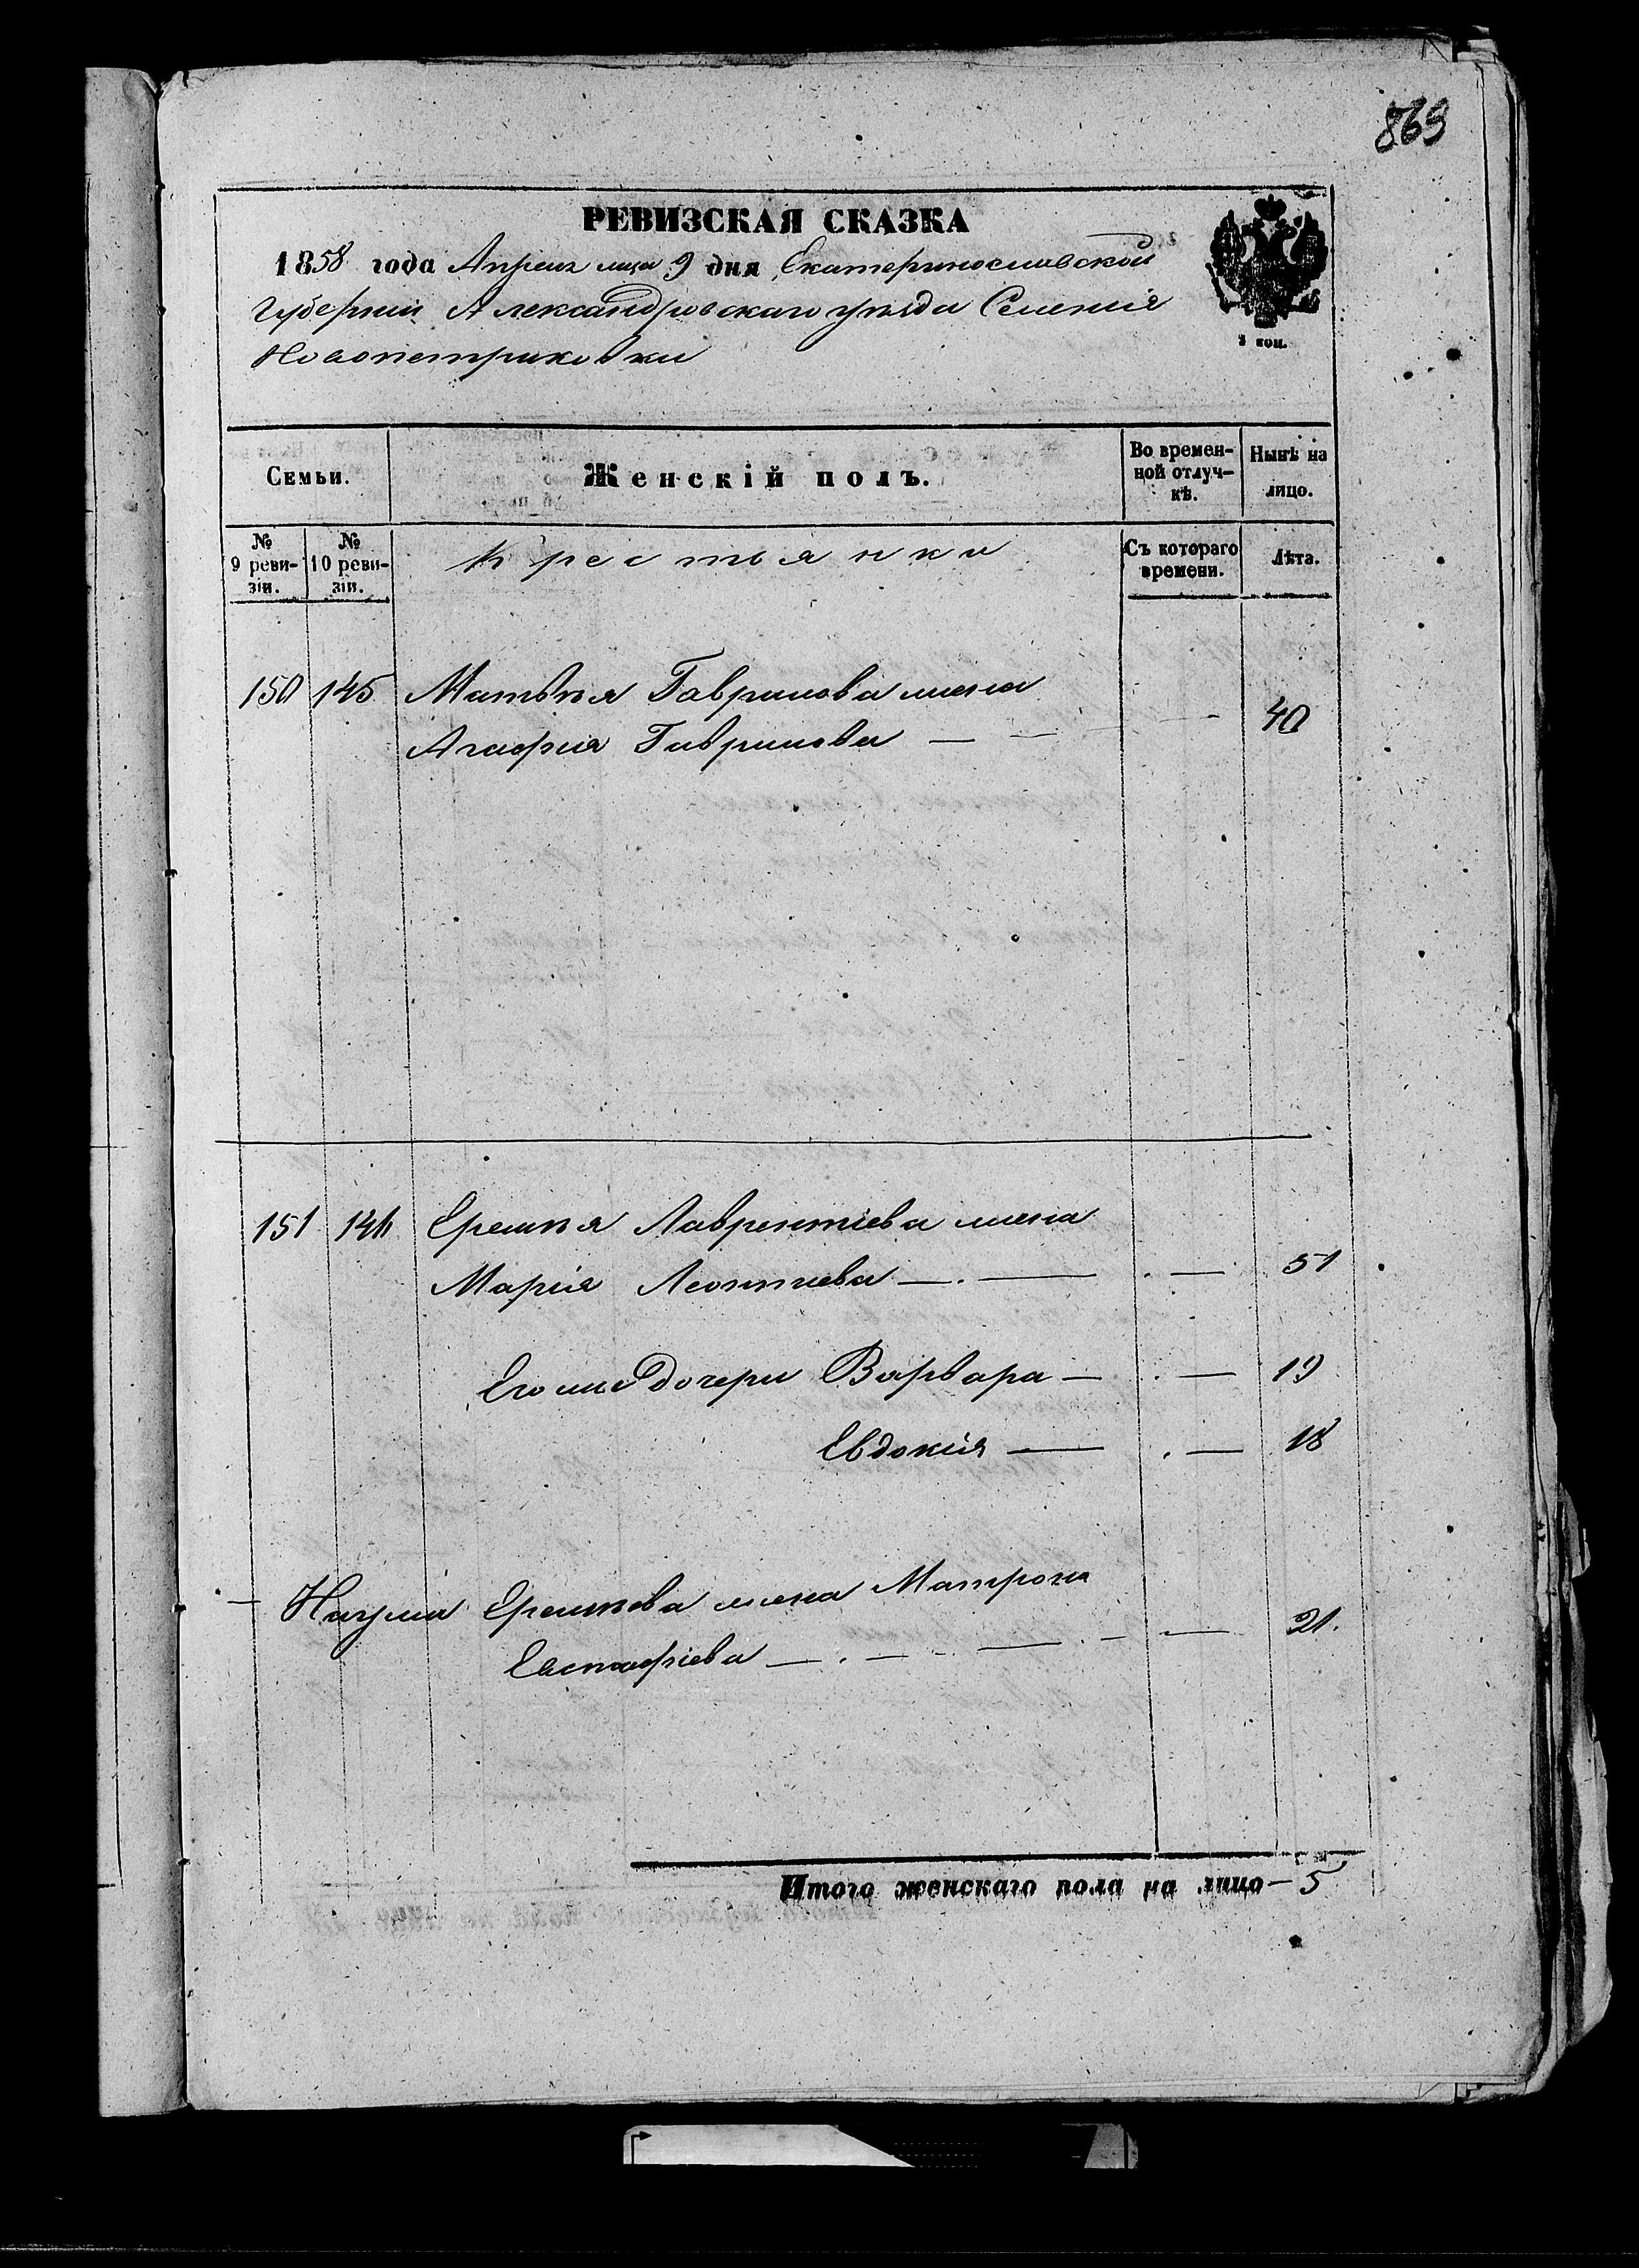 869
РЕВИЗСКАЯ СКАЗКА
1858 года Апреля мца 9 дня Екатеринославской
Губернии Александровскаго уѣзда Селенія
Новопетриковки
2 коп.
Семьи. Женскій полъ. Во времен- Нынѣ на
ной отлуч- лицо.
кѣ.
№ № Крестьянки Съ котораго Лѣта.
9 реви- 10 реви- времени.
зіи. зіи.
150 145 Матвѣя Гаврилова жена
Агафия Гаврилова — 40
151 146 Еремѣя Лаврентіева жена
Марія Леонтиева — 51
Его же дочери Варвара — 19
Евдокия — 18
Наума Еремѣева жена Матрона
Евстафіева — 21.
Итого женскаго пола на лицо — 5